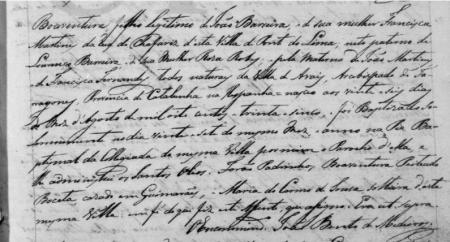 Boaventura filho legitimo de João Barreira, e de sua mulher Francisca
Martins da rua do d'esta Villa de Ponte do Lima, neto paterno de
Lourenço Barreira, e sua Mulher Rosa, pelo Materno de João Martins
e Francisca Fernandes, todos naturaes da Villa de, Arcebispado de Ta-
ragona, Provincia de Catalunha na Hespanha = nasceo aos vinte e seis dias
do Mez d'Agosto de mil oito centos e trinta e sinco, e foi Baptizado So-
lemnemente no dia vinte e sete do mesmo Mez, e anno na Pia Ba-
ptismal da Collegiada da mesma Villa por mim e Parocho d'ella, e
lhe administrei os Santos Oleos. Forão Padrinhos, Boaventura
casado em Guimarães, e Maria do Carmo de Sousa solteira d'esta
mesma Villa = em fé do que fiz este Assento que assignei. Era ut supra
O Encommendado João Bento de Medeiros